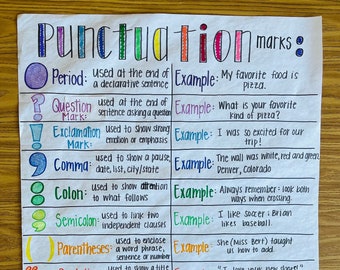 Punctuation marks:
Period: used at the end of a declarative sentence
Example: My favorite food is pizza.
Question Mark: used at the end of sentence asking a question
Example: What is your favorite kind of pizza?
Exclamation Mark: used to show strong emotion or emphasis
Example: I was so excited for our trip!
Comma: used to show a pause, date, list, city/state
Example: The wall was white, red and green. Denver, Colorado
Colon: used to show attention to what follows
Example: Always remember: look both ways when crossing.
Semicolon: used to link two independent clauses
Example: I like soccer; Brian likes baseball.
Parentheses: used to enclose a word, phrase, sentence or number
Example: She (Miss Bert) taught us how to add.
used to show a title
Example: